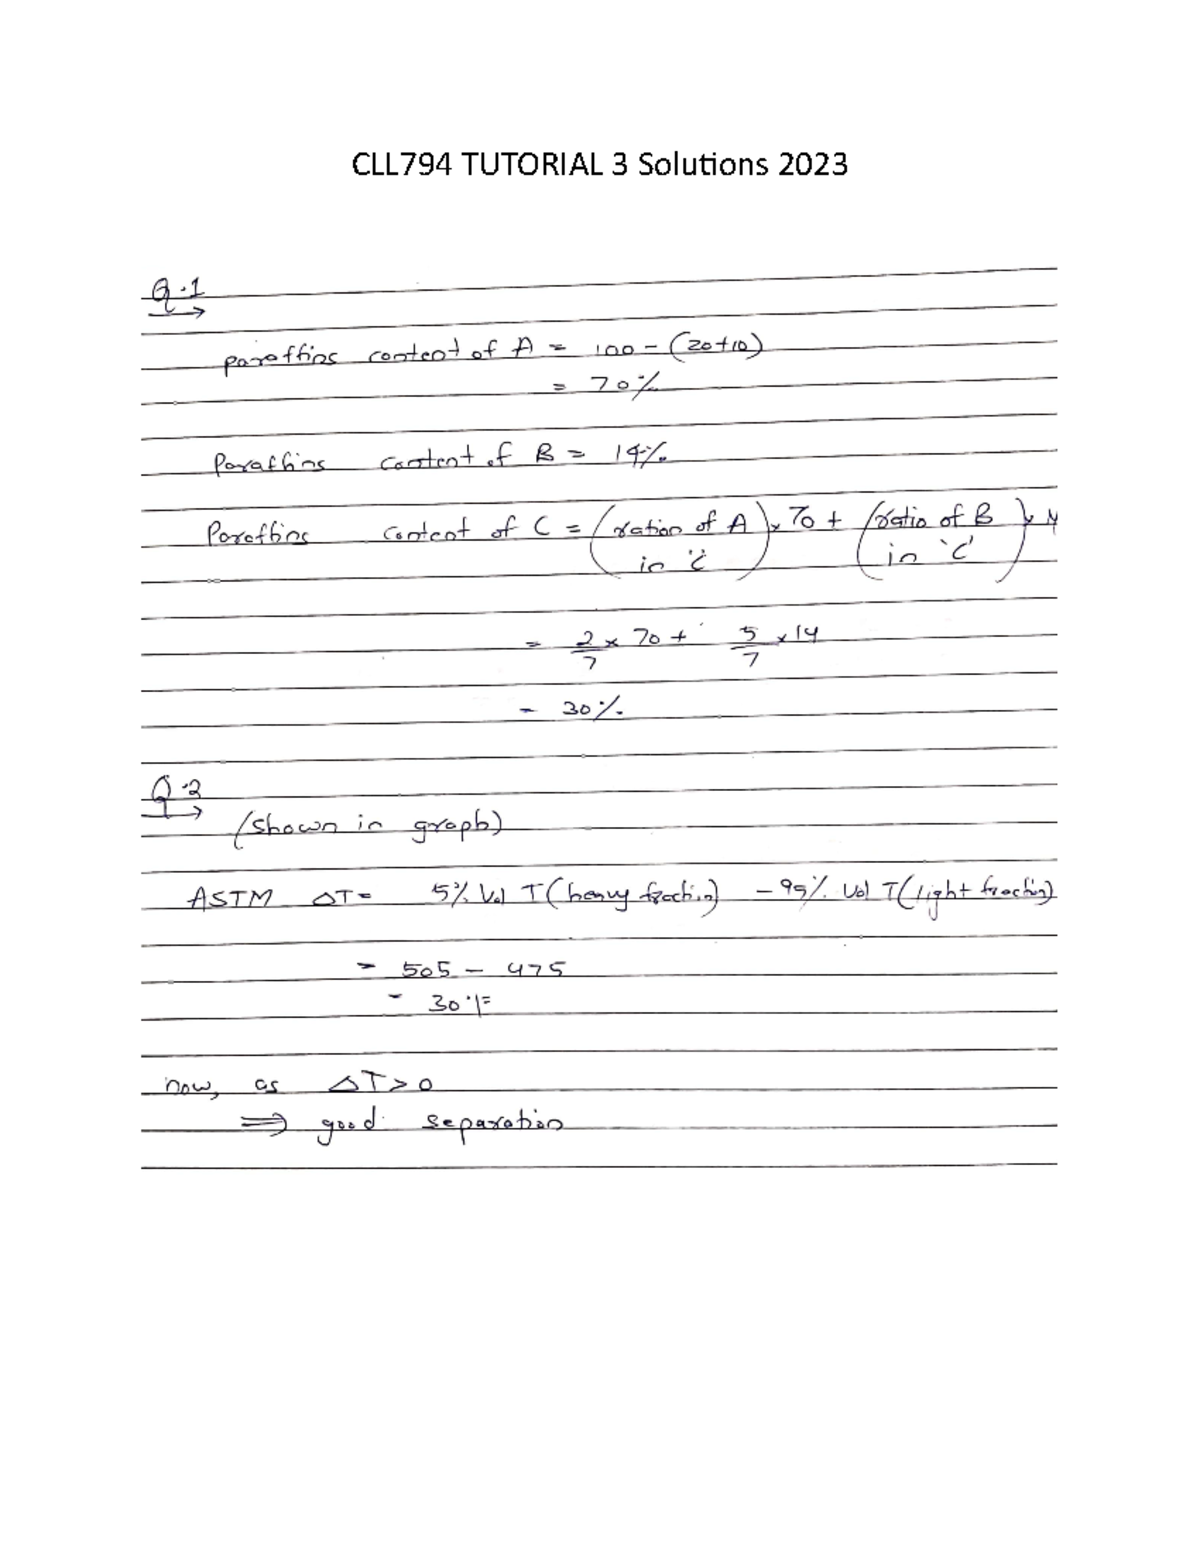 CLL794 TUTORIAL 3 Solutions 2023
Q.1
paraffins content of A = 100 - (20+10)
= 70%
Paraffins content of B = 14%
Paraffins content of C = (ration of A in 'C') x 70 + (ratio of B in 'C') x
= 2/7 x 70 + 5/7 x 14
= 30%
Q.2
(shown in graph)
ASTM ΔT = 5% Vol T (heavy fraction) - 95% Vol T (light fraction)
= 505 - 475
= 30°F
now, as ΔT > 0
⇒ good separation